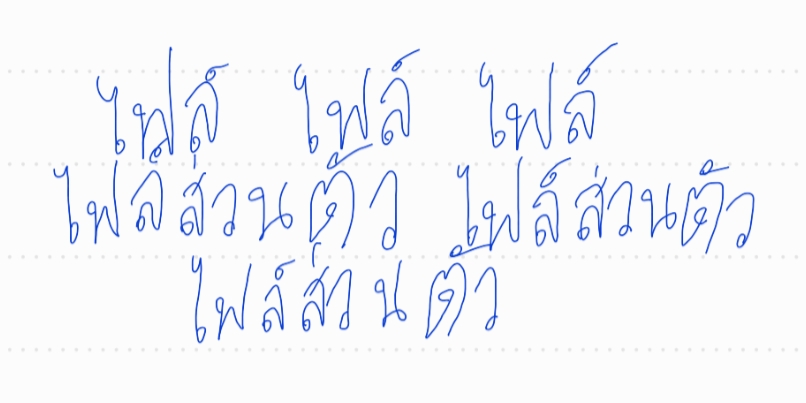 ไฟล์ ไฟล์ ไฟล์
ไฟล์ส่วนตัว ไฟล์ส่วนตัว
ไฟล์ส่วนตัว